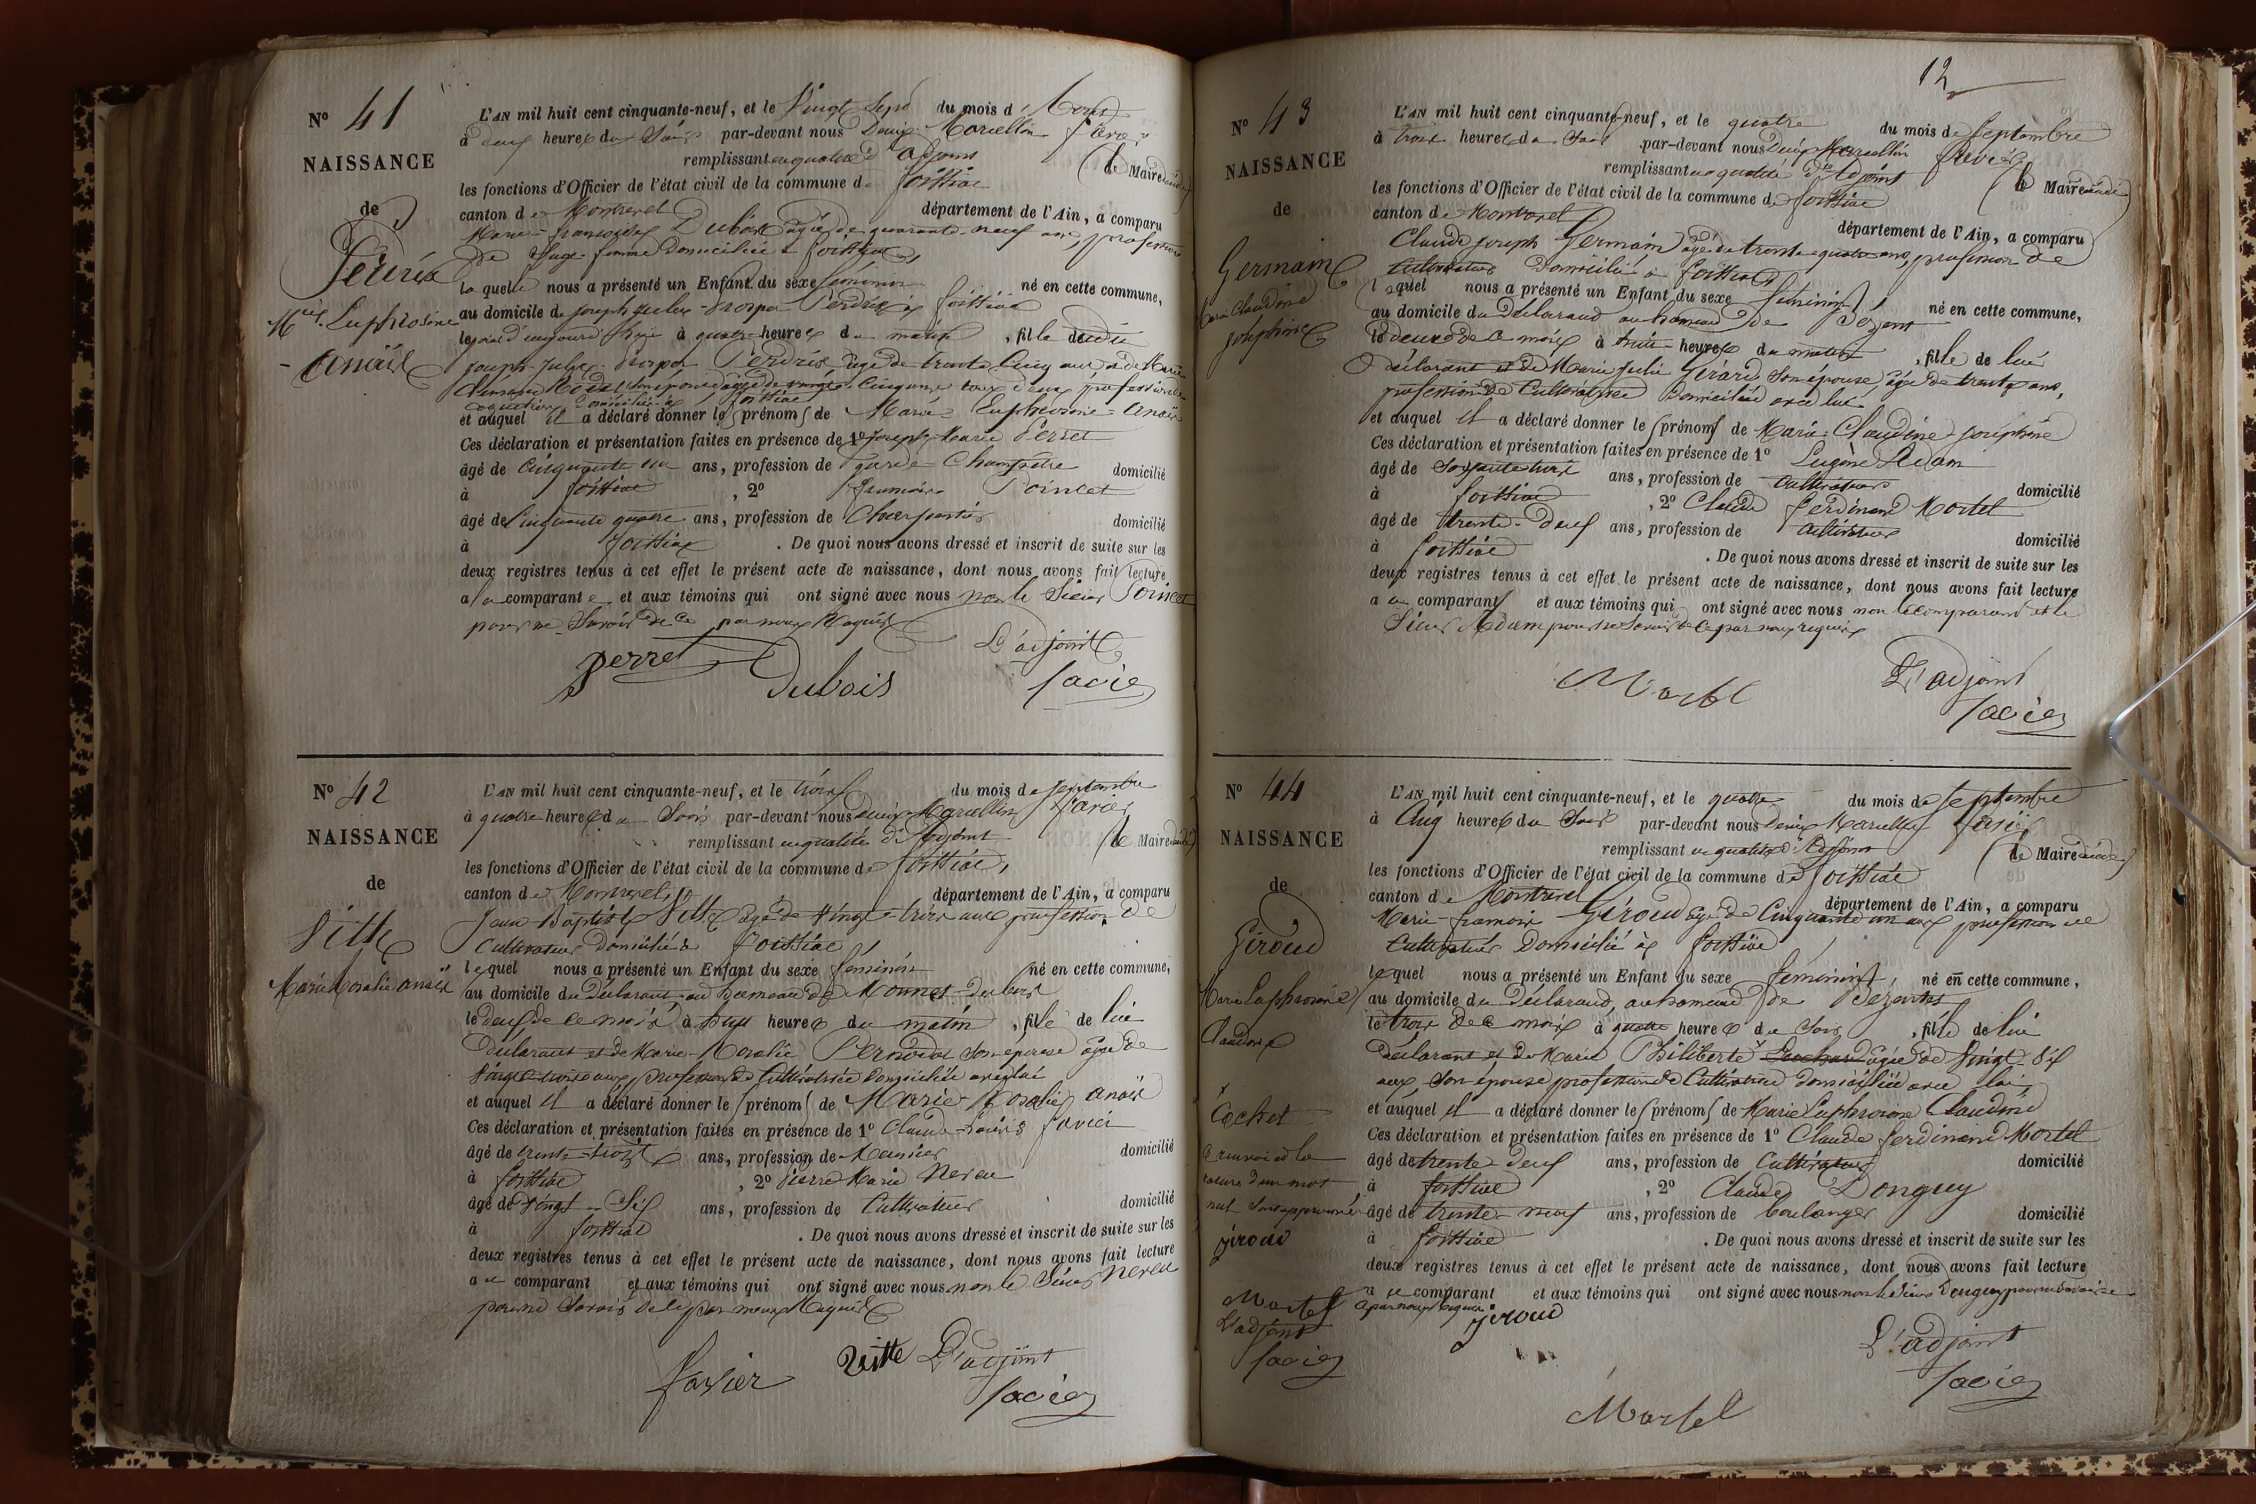 N° 41
NAISSANCE
de
Perdrix
M.ie Euphrosine
Anaïs
L'AN mil huit cent cinquante-neuf, et le Vingt Sept du mois d' Aout
à deux heures du Soir par-devant nous Denis Marcellin Favier
remplissant en qualité d'adjoint le Maire
les fonctions d'Officier de l'état civil de la commune de foissiat
canton de Montrevel département de l'Ain, a comparu
Marie françoise Dubois agée de quarante neuf ans, profession
de Sage femme Domiciliée à foissiat
laquelle nous a présenté un Enfant du sexe féminin né en cette commune,
au domicile de joseph jules prosper Perdrix à foissiat
le jour d'aujourd'hui à quatre heures du matin, fille dudit
joseph jules prosper Perdrix agé de trente cinq ans et de Marie
son épouse agée de vingt cinq ans tous deux profession de
domiciliés à foissiat
et auquel il a déclaré donner les prénoms de Marie Euphrosine Anaïs
Ces déclaration et présentation faites en présence de 1° joseph Marie Perret
âgé de Cinquante un ans, profession de garde Champêtre domicilié
à foissiat, 2° Poincet
âgé de Cinquante quatre ans, profession de Charpentier domicilié
à foissiat. De quoi nous avons dressé et inscrit de suite sur les
deux registres tenus à cet effet le présent acte de naissance, dont nous avons fait lecture
a la comparante et aux témoins qui ont signé avec nous non le Sieur Poincet
pour ne Savoir de ce par nous Requis
L'adjoint
Perret Dubois Favier
N° 42
NAISSANCE
de
Vitte
Marie Rosalie anaïs
L'AN mil huit cent cinquante-neuf, et le trois du mois de septembre
à quatre heures du Soir par-devant nous Denis Marcellin Favier
remplissant en qualité d'adjoint le Maire
les fonctions d'Officier de l'état civil de la commune de foissiat,
canton de Montrevel département de l'Ain, a comparu
Jean Baptiste Vitte agé de Vingt trois ans profession de
Cultivateur Domicilié à foissiat
lequel nous a présenté un Enfant du sexe féminin né en cette commune,
au domicile du Déclarant au hameau de
le deux de ce mois à sept heures du matin, fille de lui
Déclarant et de Marie Rosalie Pernodat son épouse agée de
Vingt trois ans profession de Cultivatrice Domiciliée avec lui
et auquel il a déclaré donner les prénoms de Marie Rosalie anaïs
Ces déclaration et présentation faites en présence de 1° Claude favier
âgé de trente ans, profession de domicilié
à foissiat, 2° Pierre Marie Nereu
âgé de Vingt Six ans, profession de Cultivateur domicilié
à foissiat. De quoi nous avons dressé et inscrit de suite sur les
deux registres tenus à cet effet le présent acte de naissance, dont nous avons fait lecture
au comparant et aux témoins qui ont signé avec nous non le Sieur Nereu
pour ne Savoir de ce par nous Requis
Favier Vitte L'adjoint
Favier
12
N° 43
NAISSANCE
de
Germain
Marie Claudine
Joséphine
L'AN mil huit cent cinquante-neuf, et le quatre du mois de Septembre
à trois heures du Soir par-devant nous Denis Marcellin Favier
remplissant en qualité d'adjoint le Maire
les fonctions d'Officier de l'état civil de la commune de foissiat
canton de Montrevel département de l'Ain, a comparu
Claude joseph Germain agé de trente quatre ans, profession de
Cultivateur Domicilié à foissiat
lequel nous a présenté un Enfant du sexe féminin né en cette commune,
au domicile du Déclarant au hameau de
le deux de ce mois à heures du matin, fille de lui
déclarant et de Marie julie Girard Son épouse agée de trente ans,
profession de Cultivatrice Domiciliée avec lui
et auquel il a déclaré donner les prénoms de Marie Claudine joséphine
Ces déclaration et présentation faites en présence de 1° Eugène Adam
âgé de ans, profession de Cultivateur domicilié
à foissiat, 2° Claude ferdinand Mortel
âgé de trente deux ans, profession de Cultivateur domicilié
à foissiat. De quoi nous avons dressé et inscrit de suite sur les
deux registres tenus à cet effet le présent acte de naissance, dont nous avons fait lecture
au comparant et aux témoins qui ont signé avec nous non le comparant et le
Sieur Adam pour ne Savoir de ce par nous requis
Mortel L'adjoint
Favier
N° 44
NAISSANCE
de
Giroud
Marie Euphrosine
Claudine
Cachet
Giroud
Mortel
L'adjoint
Favier
L'AN mil huit cent cinquante-neuf, et le quatre du mois de Septembre
à Cinq heures du Soir par-devant nous Denis Marcellin Favier
remplissant en qualité d'adjoint le Maire
les fonctions d'Officier de l'état civil de la commune de foissiat
canton de Montrevel département de l'Ain, a comparu
Marie françois Giroud agé de Cinquante un ans profession de
Cultivateur Domicilié à foissiat
lequel nous a présenté un Enfant du sexe féminin, né en cette commune,
au domicile du Déclarant, au hameau de
le trois de ce mois à quatre heures du Soir, fille de lui
déclarant et de Marie Philiberte agée de Vingt Six
ans, Son épouse profession de Cultivatrice domiciliée avec lui,
et auquel il a déclaré donner les prénoms de Marie Euphrosine Claudine
Ces déclaration et présentation faites en présence de 1° Claude ferdinand Mortel
âgé de trente deux ans, profession de Cultivateur domicilié
à foissiat, 2° Claude Donguy
âgé de trente neuf ans, profession de boulanger domicilié
à foissiat. De quoi nous avons dressé et inscrit de suite sur les
deux registres tenus à cet effet le présent acte de naissance, dont nous avons fait lecture
au comparant et aux témoins qui ont signé avec nous non le Sieur Donguy pour ne Savoir de
ce par nous Requis
Giroud
L'adjoint
Favier
Mortel